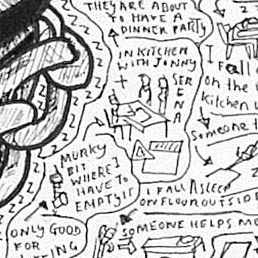 THEY ARE ABOUT
TO HAVE A
DINNER PARTY
IN KITCHEN
WITH JONNY
+
SERENA
I Fall
on the
Kitchen
Someone
MURKY
BIT
WHERE I
HAVE TO
EMPTY IT
I FALL ASLEEP
ON FLOOR OUTSIDE
SOMEONE HELPS ME
ONLY GOOD
FOR